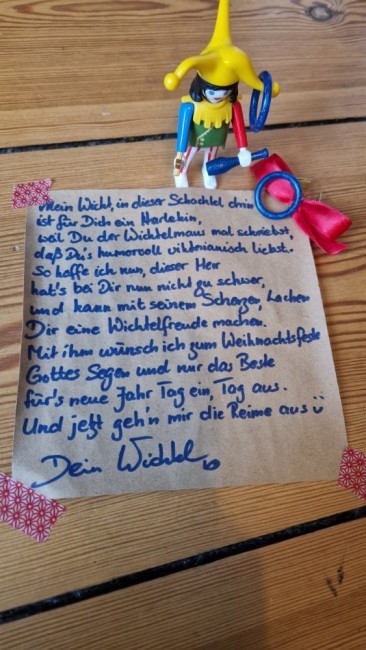 Mein Wicht, in dieser Schachtel drin
ist für Dich ein Harlekin,
weil Du der Wichtelmaus mal schriebst,
daß Du's humorvoll viktorianisch liebst.
So hoffe ich nun, dieser Herr
hat's bei Dir nun nicht zu schwer,
und kann mit seinem Scherzen, Lachen
Dir eine Wichtelfreude machen.
Mit ihm wünsch ich zum Weihnachtsfeste
Gottes Segen und nur das Beste
für's neue Jahr Tag ein, Tag aus.
Und jetzt geh'n mir die Reime aus ü
Dein Wichtel